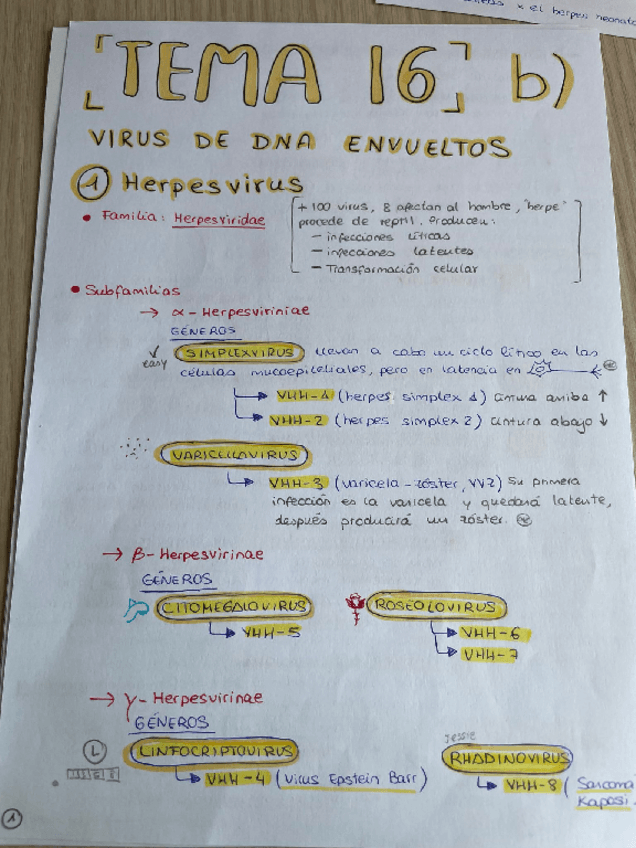 x el herpes neonata
[TEMA 16] b)
VIRUS DE DNA ENVUELTOS
① Herpesvirus
• Familia: Herpesviridae
+100 virus, 8 afectan al hombre, "herpe"
procede de reptil, Producen:
— infecciones líticas
— infecciones latentes
— Transformación celular
• Subfamilias
→ α- Herpesviriniae
GÉNEROS
easy
SIMPLEXVIRUS llevan a cabo un ciclo lítico en las
células mucoepiteliales, pero en latencia en
VHH-1 (herpes simplex 1) cintura arriba ↑
VHH-2 (herpes simplex 2) cintura abajo ↓
VARICELLOVIRUS
VHH-3 (varicela-zóster, VVZ) Su primera
infección es la varicela y quedará latente,
después producirá un zóster.
→ β- Herpesvirinae
GÉNEROS
CITOMEGALOVIRUS
VHH-5
ROSEOLOVIRUS
VHH-6
VHH-7
→ γ- Herpesvirinae
GÉNEROS
L
LINFOCRIPTOVIRUS
VHH-4 (virus Epstein Barr)
Jessie
RHADINOVIRUS
VHH-8 (Sarcoma
Kaposi.
1